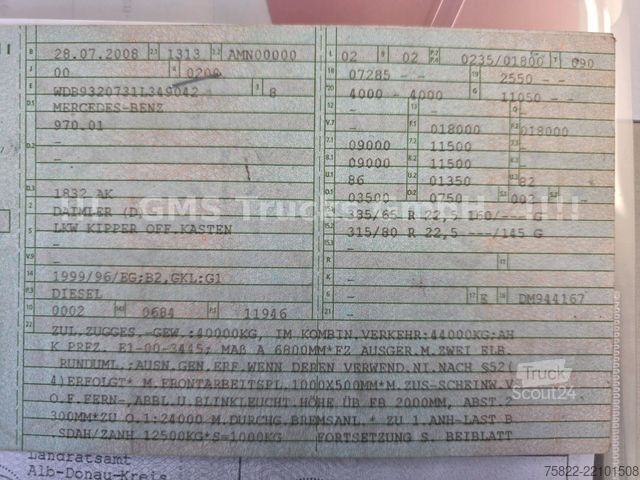 B 28.07.2008 2.1 1313 2.2 AMN00000
L 02 9 02 P.2 P.4 0235/01800 T 090
00 4 0200
18 07285 - - 19 2550 - -
E WDB9320731L349042 3 8
20 4000 - 4000 G 11050 - -
D.1 MERCEDES-BENZ
970.01
V.7 - F.1 018000 F.2 018000
D.2 -
7.1 09000 11500 -
8.1 09000 11500 -
U.1 86 U.2 01350 82
D.3 1832 AK
03500 0750 S.1
2 DAIMLER (D)
335/65 R 22,5 160/--- G
5 LKW KIPPER OFF.KASTEN
315/80 R 22,5 ---/145 G
!!! GMS Trucks !!!!
R -
K -
14 1999/96/EG;B2,GKL:G1
DIESEL
6 - 17 E 16 DM944167
10 0002 0684 P.1 11946
21 -
22 ZUL.ZUGGES.-GEW.:40000KG, IM KOMBIN.VERKEHR:44000KG:AH
K PRZ. E1-00-3445; MAß A 6800MM*FZ AUSGER.M.ZWEI ELB.
RUNDUML.;AUSN.GEN.ERF.WENN DEREN VERWEND.NI.NACH §52(
4)ERFOLGT* M.FRONTARBEITSPL.1000X500MM*M.ZUS-SCHEINW.V
O.F.FERN-,ABBL.U.BLINKLEUCHT.HÖHE ÜB FZ 2000MM, ABST.>
300MM*ZU O.1:24000 M.DURCHG.BREMSANL.* ZU 1.ANH-LAST B
.SDAH/ZANH 12500KG*S=1000KG FORTSETZUNG S. BEIBLATT
Truck
Scout24
Landratsamt
Alb-Donau-Kreis
75822-22101508